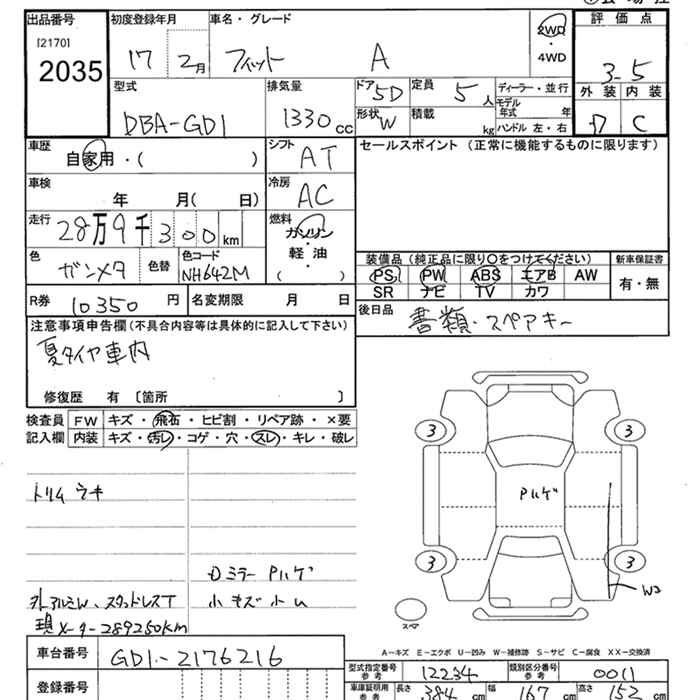 出品番号 初度登録年月 車名・グレード 2WD ・ 4WD 評価点
[2170]
2035 17 2月 フィット A 3.5
型式 排気量 ドア 5D 定員 5人 ディーラー・並行 外装 内装
DBA-GD1 1330cc 形状 W 積載 kg モデル年式 年 D C
ハンドル 左・右
車歴 自家用・( ) シフト AT セールスポイント (正常に機能するものに限ります)
車検 年 月( 日) 冷房 AC
走行 28万9千300km 燃料 ガソリン・軽油 ( ・ )
色 ガンメタ 色替 色コード NH642M
装備品 (純正品に限り○をつけてください) 新車保証書
PS PW ABS エアB AW 有・無
SR ナビ TV カワ
R券 10350円 名変期限 月 日 後日品 書類・スペアキー
注意事項申告欄(不具合内容等は具体的に記入して下さい)
夏タイヤ車内
修復歴 有 〔箇所 〕
検査員 FW キズ・飛石・ヒビ割・リペア跡・×要
記入欄 内装 キズ・汚レ・コゲ・穴・スレ・キレ・破レ
3 3
トリムウキ Pハゲ
Dミラー Pハゲ 3 3
外アルミW、スタッドレスT 小キズ小ム W2
現メーター289250KM スペア
A-キズ E-エクボ U-凹み W-補修跡 S-サビ C-腐食 XX-交換済
車台番号 GD1-2176216
型式指定番号 参考 12234 類別区分番号 参考 0011
登録番号 車庫証明用 参考 長さ 384cm 幅 167cm 高さ 152cm